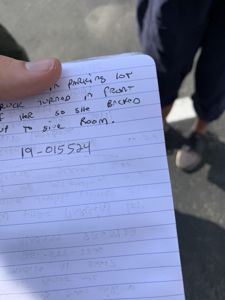 IN PARKING LOT
TRUCK TURNED IN FRONT
OF HER SO SHE BACKED
UP TO GIVE ROOM.
19-015524